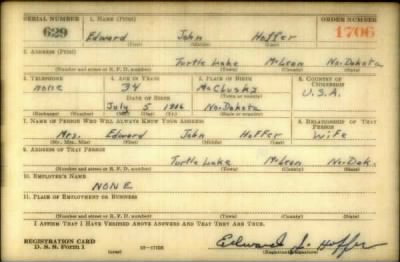 SERIAL NUMBER 1. NAME (Print) ORDER NUMBER
629 Edward John Hoffer 1706
(First) (Middle) (Last)
2. ADDRESS (Print)
Turtle Lake McLean No. Dakota
(Number and street or R. F. D. number) (Town) (County) (State)
3. TELEPHONE 4. AGE IN YEARS 5. PLACE OF BIRTH 6. COUNTRY OF CITIZENSHIP
none 34 McClusky U.S.A.
DATE OF BIRTH (Town or county)
July 5 1906 No. Dakota
(Exchange) (Number) (Mo.) (Day) (Yr.) (State or country)
7. NAME OF PERSON WHO WILL ALWAYS KNOW YOUR ADDRESS 8. RELATIONSHIP OF THAT PERSON
Mrs. Edward John Hoffer Wife
(Mr., Mrs., Miss) (First) (Middle) (Last)
9. ADDRESS OF THAT PERSON
Turtle Lake McLean No. Dak.
(Number and street or R. F. D. number) (Town) (County) (State)
10. EMPLOYER'S NAME
NONE
11. PLACE OF EMPLOYMENT OR BUSINESS
(Number and street or R. F. D. number) (Town) (County) (State)
I AFFIRM THAT I HAVE VERIFIED ABOVE ANSWERS AND THAT THEY ARE TRUE.
REGISTRATION CARD
D. S. S. Form 1 (over) Edward J. Hoffer
(Registrant's signature)